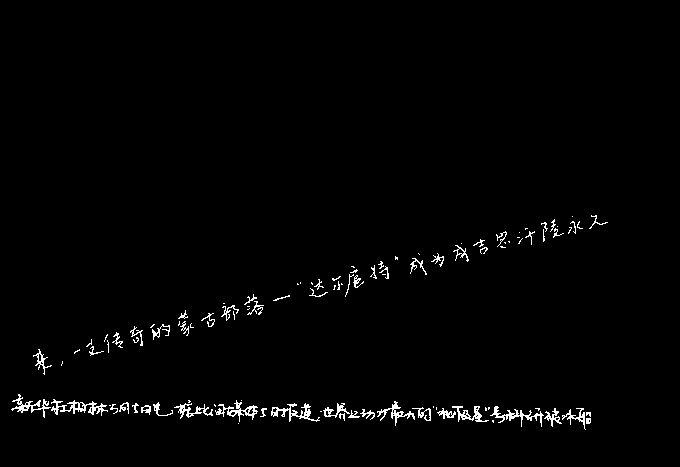 来，一支传奇的蒙古部落一"达尔扈特"成为成吉思汗陵永久
新华社柏林5月5日电 据此间媒体5日报道，世界上动力最大的"北极星"号科研破冰船